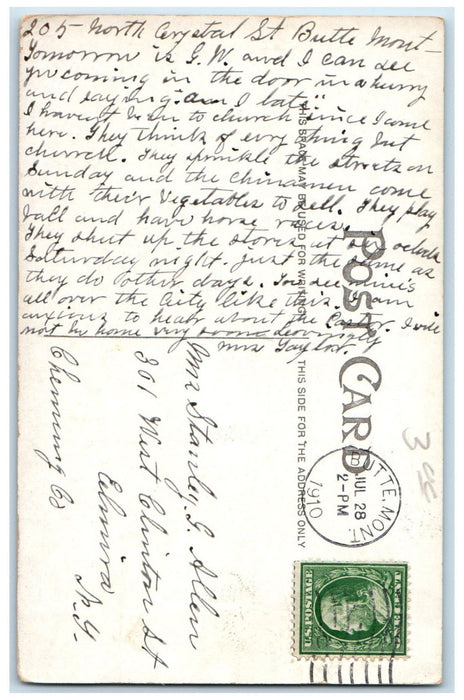 205 North Crystal St Butte Mont
Tomorrow is G. W. and I can see
you coming in the door in a hurry
and saying: am I late!!
I haven't been to church since I came
here. They think of every thing but
church. They sprinkle the streets on
Sunday and the chinamen come
with their vegetables to sell. They play
ball and have horse races.
They shut up the stores at six o'clock
Saturday night. just the same as
they do other days. You see mines
all over the City like this. I am
anxious to hear about the I will
not be home very soon
Mrs Taylor.
THIS SPACE MAY BE USED FOR WRITING
POST CARD
THIS SIDE FOR THE ADDRESS ONLY
Mrs Stanley G. Allen
361 West Clinton St
Elmira
N.Y.
Chemung Co
BUTTE, MONT.
JUL 28
2-PM
1910
U.S. POSTAGE